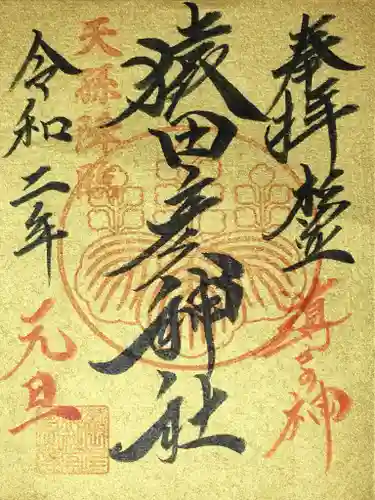 奉拝 笠
導きの神
猿田彦神社
天孫降臨
令和二年
元旦